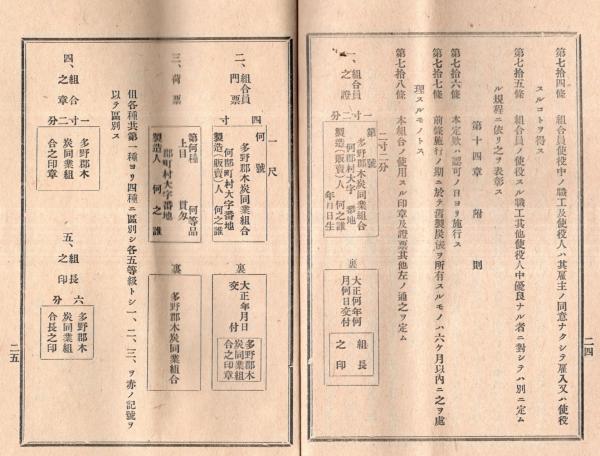 第七拾四條 組合員使役中ノ職工及使役人ハ其雇主ノ同意ナクシテ雇入又ハ使役
スルコトヲ得ス
第七拾五條 組合員ノ使役スル職工其他使役人中優良ナル者ニ對シテハ別ニ定ム
ル規程ニ依リ之ヲ表彰ス
第十四章 附則
第七拾六條 本定欵ハ認可ノ日ヨリ施行ス
第七拾七條 前條施行ノ期ニ於テ舊製炭俵ヲ所有スルモノハ六ケ月以內ニ之ヲ處
理スルモノトス
第七拾八條 本組合ノ使用スル印章及證票其他左ノ通之ヲ定ム
一、組合員之證
二寸二分
一寸二分
第 號
多野郡木炭同業組合
何郡町村大字 番地
製造(販賣)人 何之誰
年月日生
裏
大正何年何
月何日交付
組長
之印
二四
二、組合員門票
一尺
四寸
何號
多野郡木炭同業組合
何郡町村大字番地
製造(販賣)人 何之誰
裏
大正年月日
交付
多野郡木
炭同業組
合之印章
三、荷票
第何種 何等品
上目 貫匁
郡町村大字番地
製造人 何之誰
裏
多野郡木炭同業組合
但各種共第一種ヨリ四種ニ區別シ各五等級トシ一、二、三、ヲ赤ノ記號ヲ
以テ區別ス
四、組合之章
一寸二分
多野郡木
炭同業組
合之印章
五、組長之印
六分
多野郡木
炭同業組
合長之印
二五